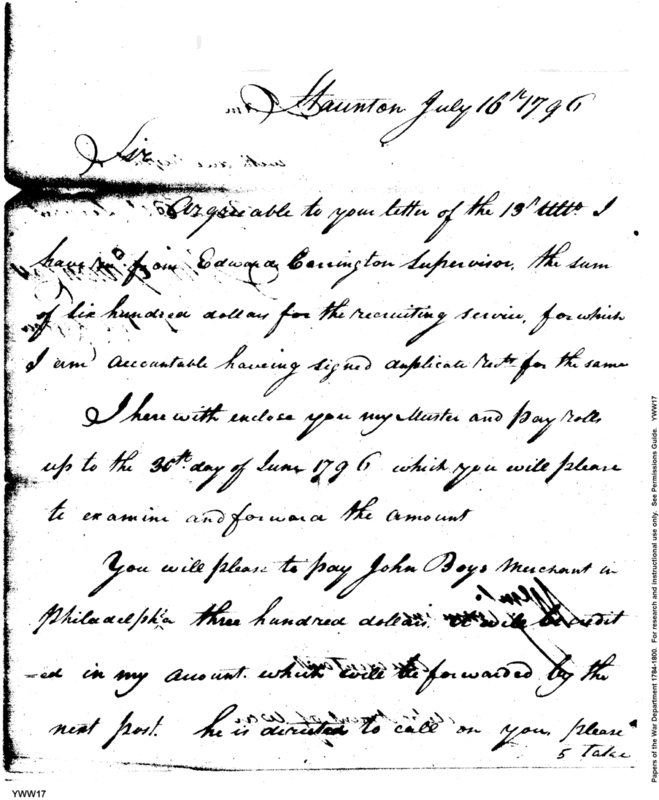 Staunton July 16th 1796
Sir
Agreeable to your letter of the 13th Ulto. I
have from Edward Carrington Supervisor, the sum
of Six hundred dollars for the recruiting service, for which
I am accountable haveing signed duplicate rects for the same
I here with enclose you my Muster and pay rolls
up to the 30th day of June 1796 which you will please
to examine and forward the amount
You will please to pay John Boys Merchant in
Philadelphia three hundred dollars. it will be credit
-ed in my acount. which will be forwarded by the
next post. he is directed to call on you, please
5 take
Papers of the War Department 1784-1800. For research and instructional use only. See Permissions Guide. YWW17
YWW17